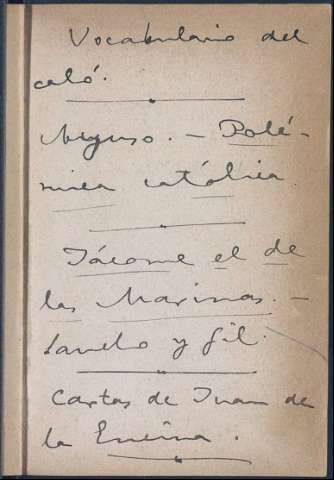 Vocabulario del
caló.
Polé-
mica católica.
Jácome el de
las Marinas. –
Sancho y Gil.
Cartas de Juan de
la Encina.